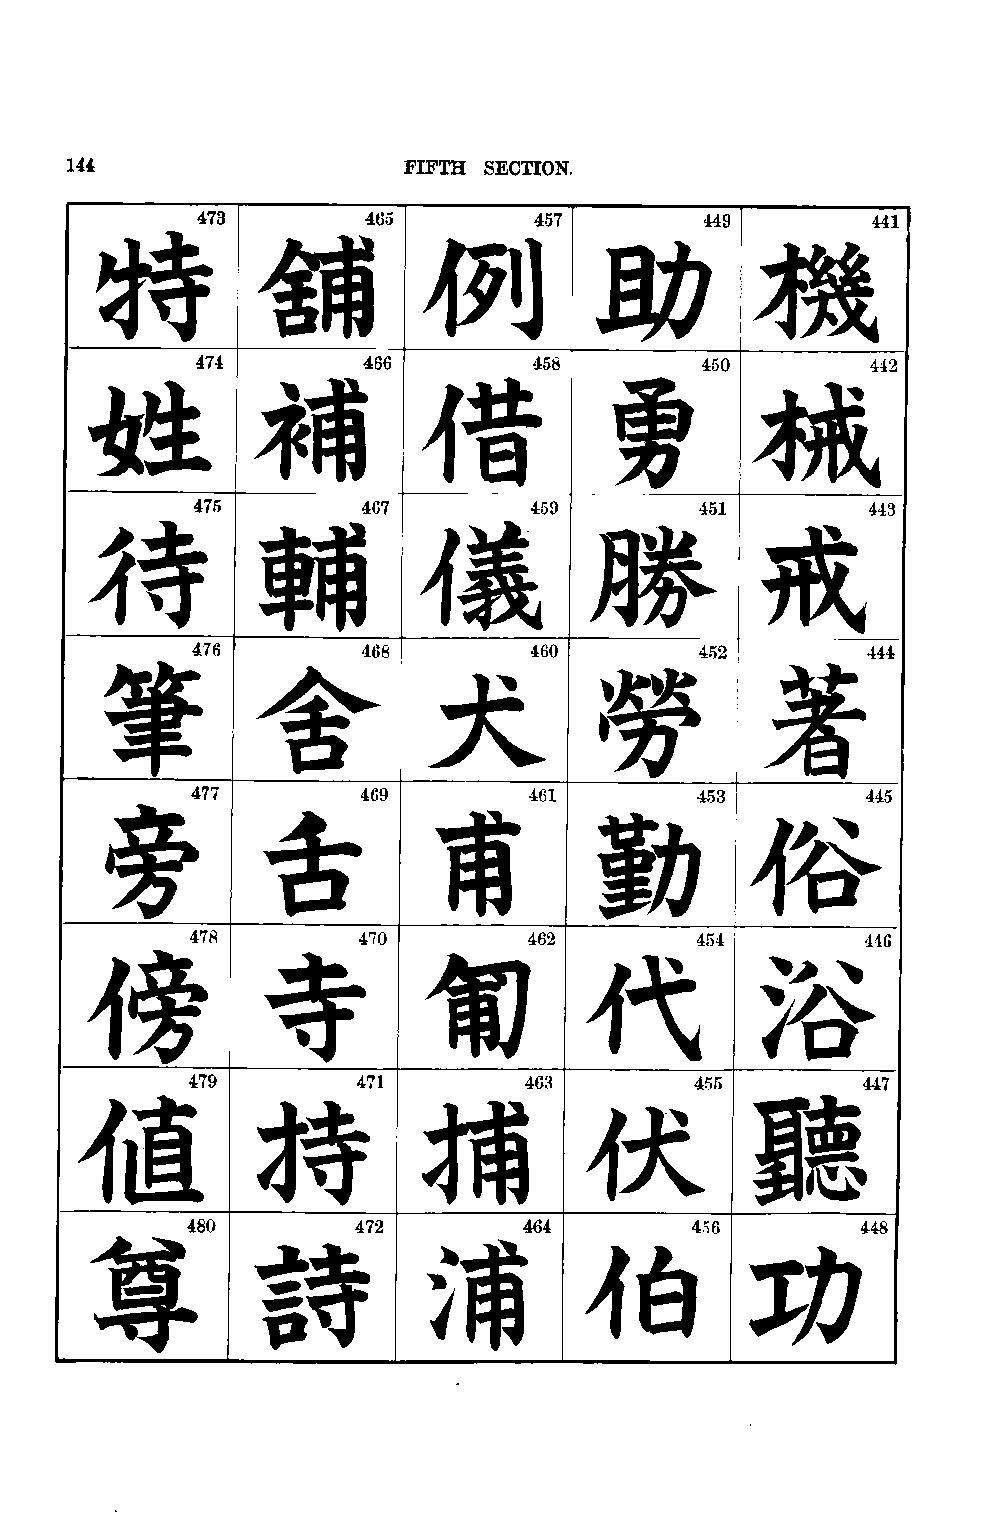 144 FIFTH SECTION.
473 465 457 449 441
特 舖 例 助 機
474 466 458 450 442
姓 補 借 勇 械
475 467 459 451 443
待 輔 儀 勝 戒
476 468 460 452 444
筆 舍 犬 勞 著
477 469 461 453 445
旁 舌 甫 勤 俗
478 470 462 454 446
傍 寺 匍 代 浴
479 471 463 455 447
値 持 捕 伏 聽
480 472 464 456 448
尊 詩 浦 伯 功